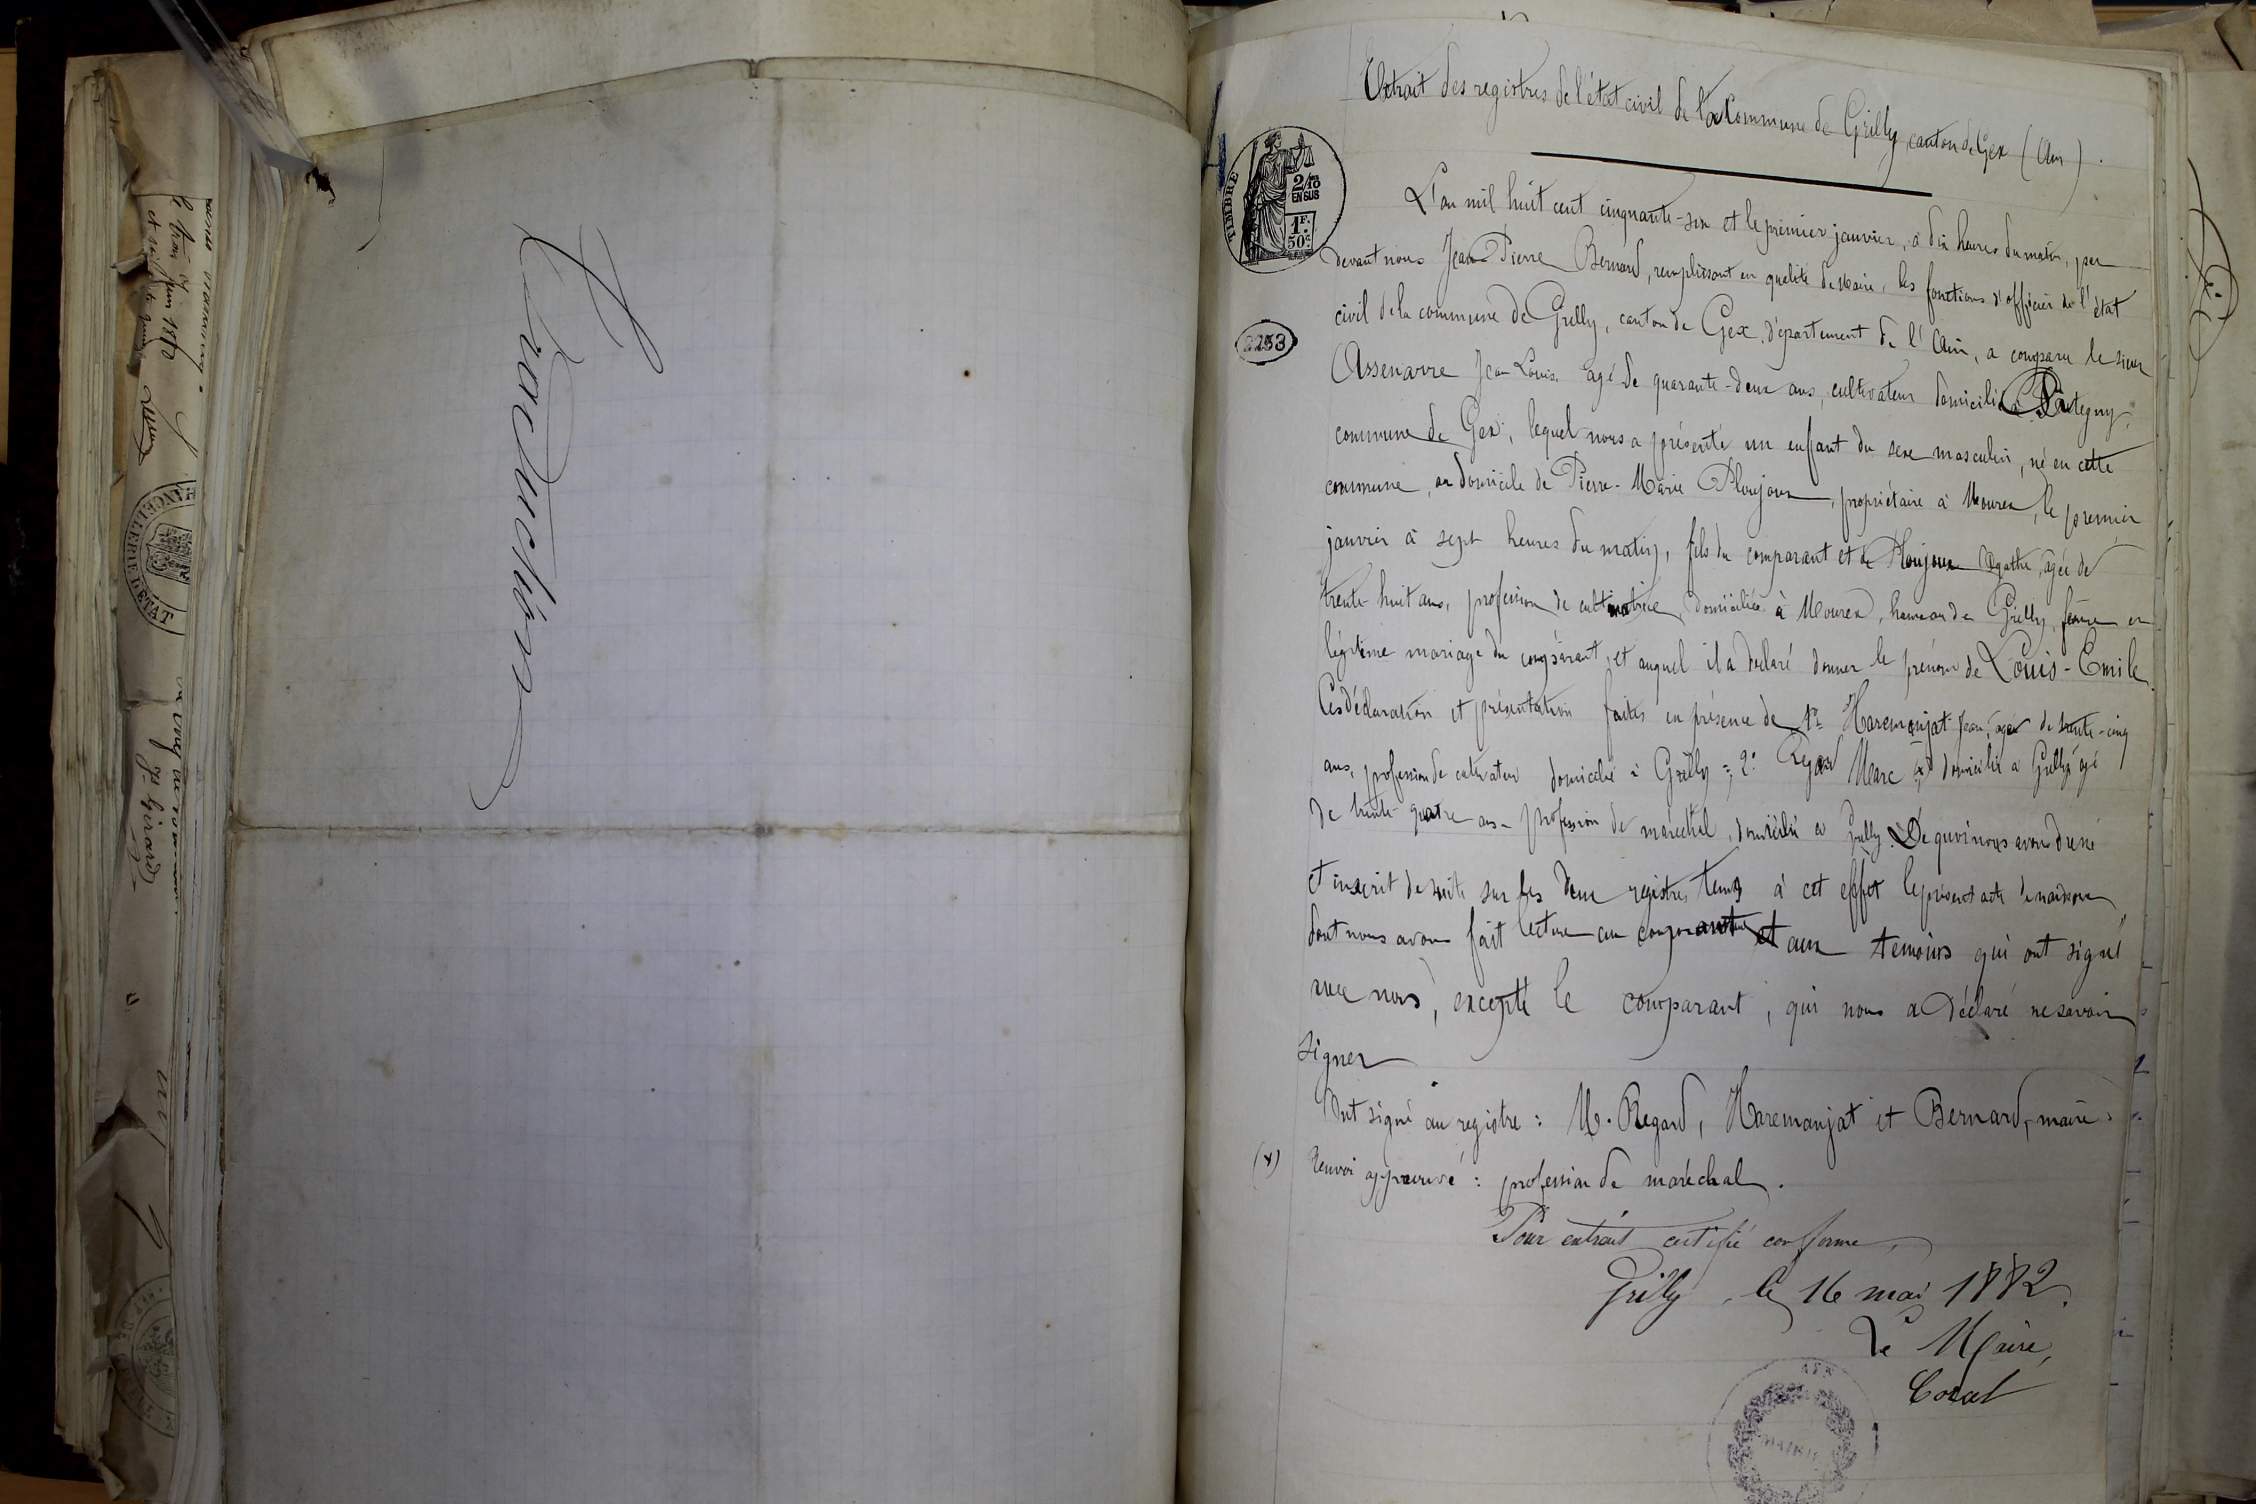 Traduction
Extrait des registres de l'état civil de la Commune de Grilly, canton de Gex (Ain).
TIMBRE
2/10
EN SUS
1F.
50c
2253
L'an mil huit cent cinquante-six et le premier janvier, à dix heures du matin, par
devant nous Jean Pierre Bernard, remplissant en qualité de Maire, les fonctions d'officier de l'état
civil de la commune de Grilly, canton de Gex, département de l'Ain, a comparu le sieur
Assenarre Jean Louis, agé de quarante-deux ans, cultivateur domicilié à
commune de Gex, lequel nous a présenté un enfant du sexe masculin, né en cette
commune, au domicile de Pierre-Marie Ploujoux, propriétaire à Mourex, le premier
janvier à sept heures du matin, fils du comparant et de Ploujoux Agathe, agée de
trente huit ans, profession de cultivatrice, domiciliée à Mourex, hameau de Grilly, femme en
légitime mariage du comparant, et auquel il a déclaré donner le prénom de Louis-Emile
Ces déclaration et présentation faites en présence de 1o Haremanjat Jean, agé de trente-cinq
ans, profession de cultivateur domicilié à Grilly; 2o Regard Marc (x) domicilié a Grilly, agé
de trente quatre ans profession de maréchal, domicilié à Grilly. De quoi nous avons dressé
et inscrit de suite sur les deux registres tenus à cet effet le présent acte de naissance,
dont nous avons fait lecture au comparant et aux temoins qui ont signé
avec nous, excepté le comparant, qui nous a déclaré ne savoir
signer
Ont signé au registre: M. Regard, Haremanjat et Bernard, maire.
(x) Renvoi approuvé: profession de maréchal.
Pour extrait certifié conforme,
Grilly, le 16 mai 1882.
Le Maire,
MAIRIE
CHANCELLERIE D'ÉTAT